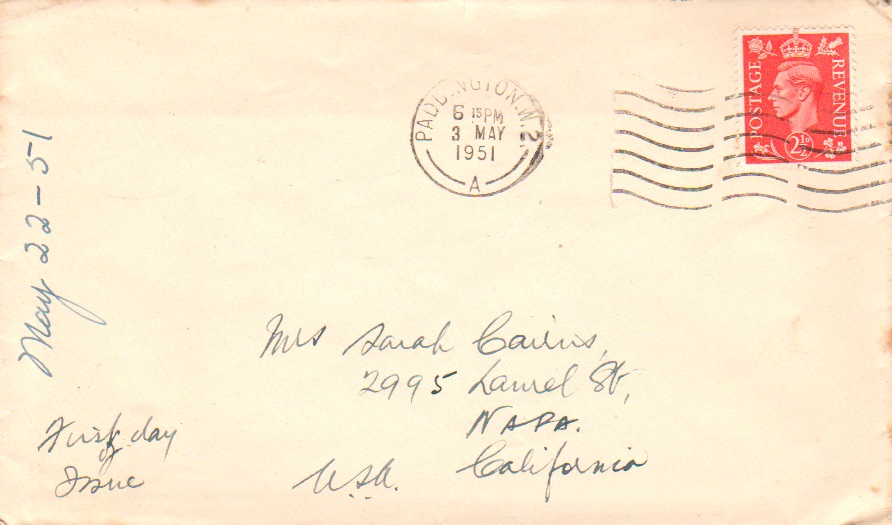 PADDINGTON.W.2.
6 15 PM
3 MAY
1951
A
POSTAGE REVENUE
2½D
May 22-51
Mrs Sarah Cairns,
2995 Laurel St,
NAPA.
California
U.S.A.
First day
Issue